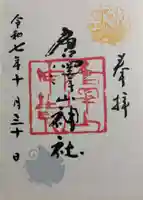 奉拝
唐澤山神社
令和七年十月三十日